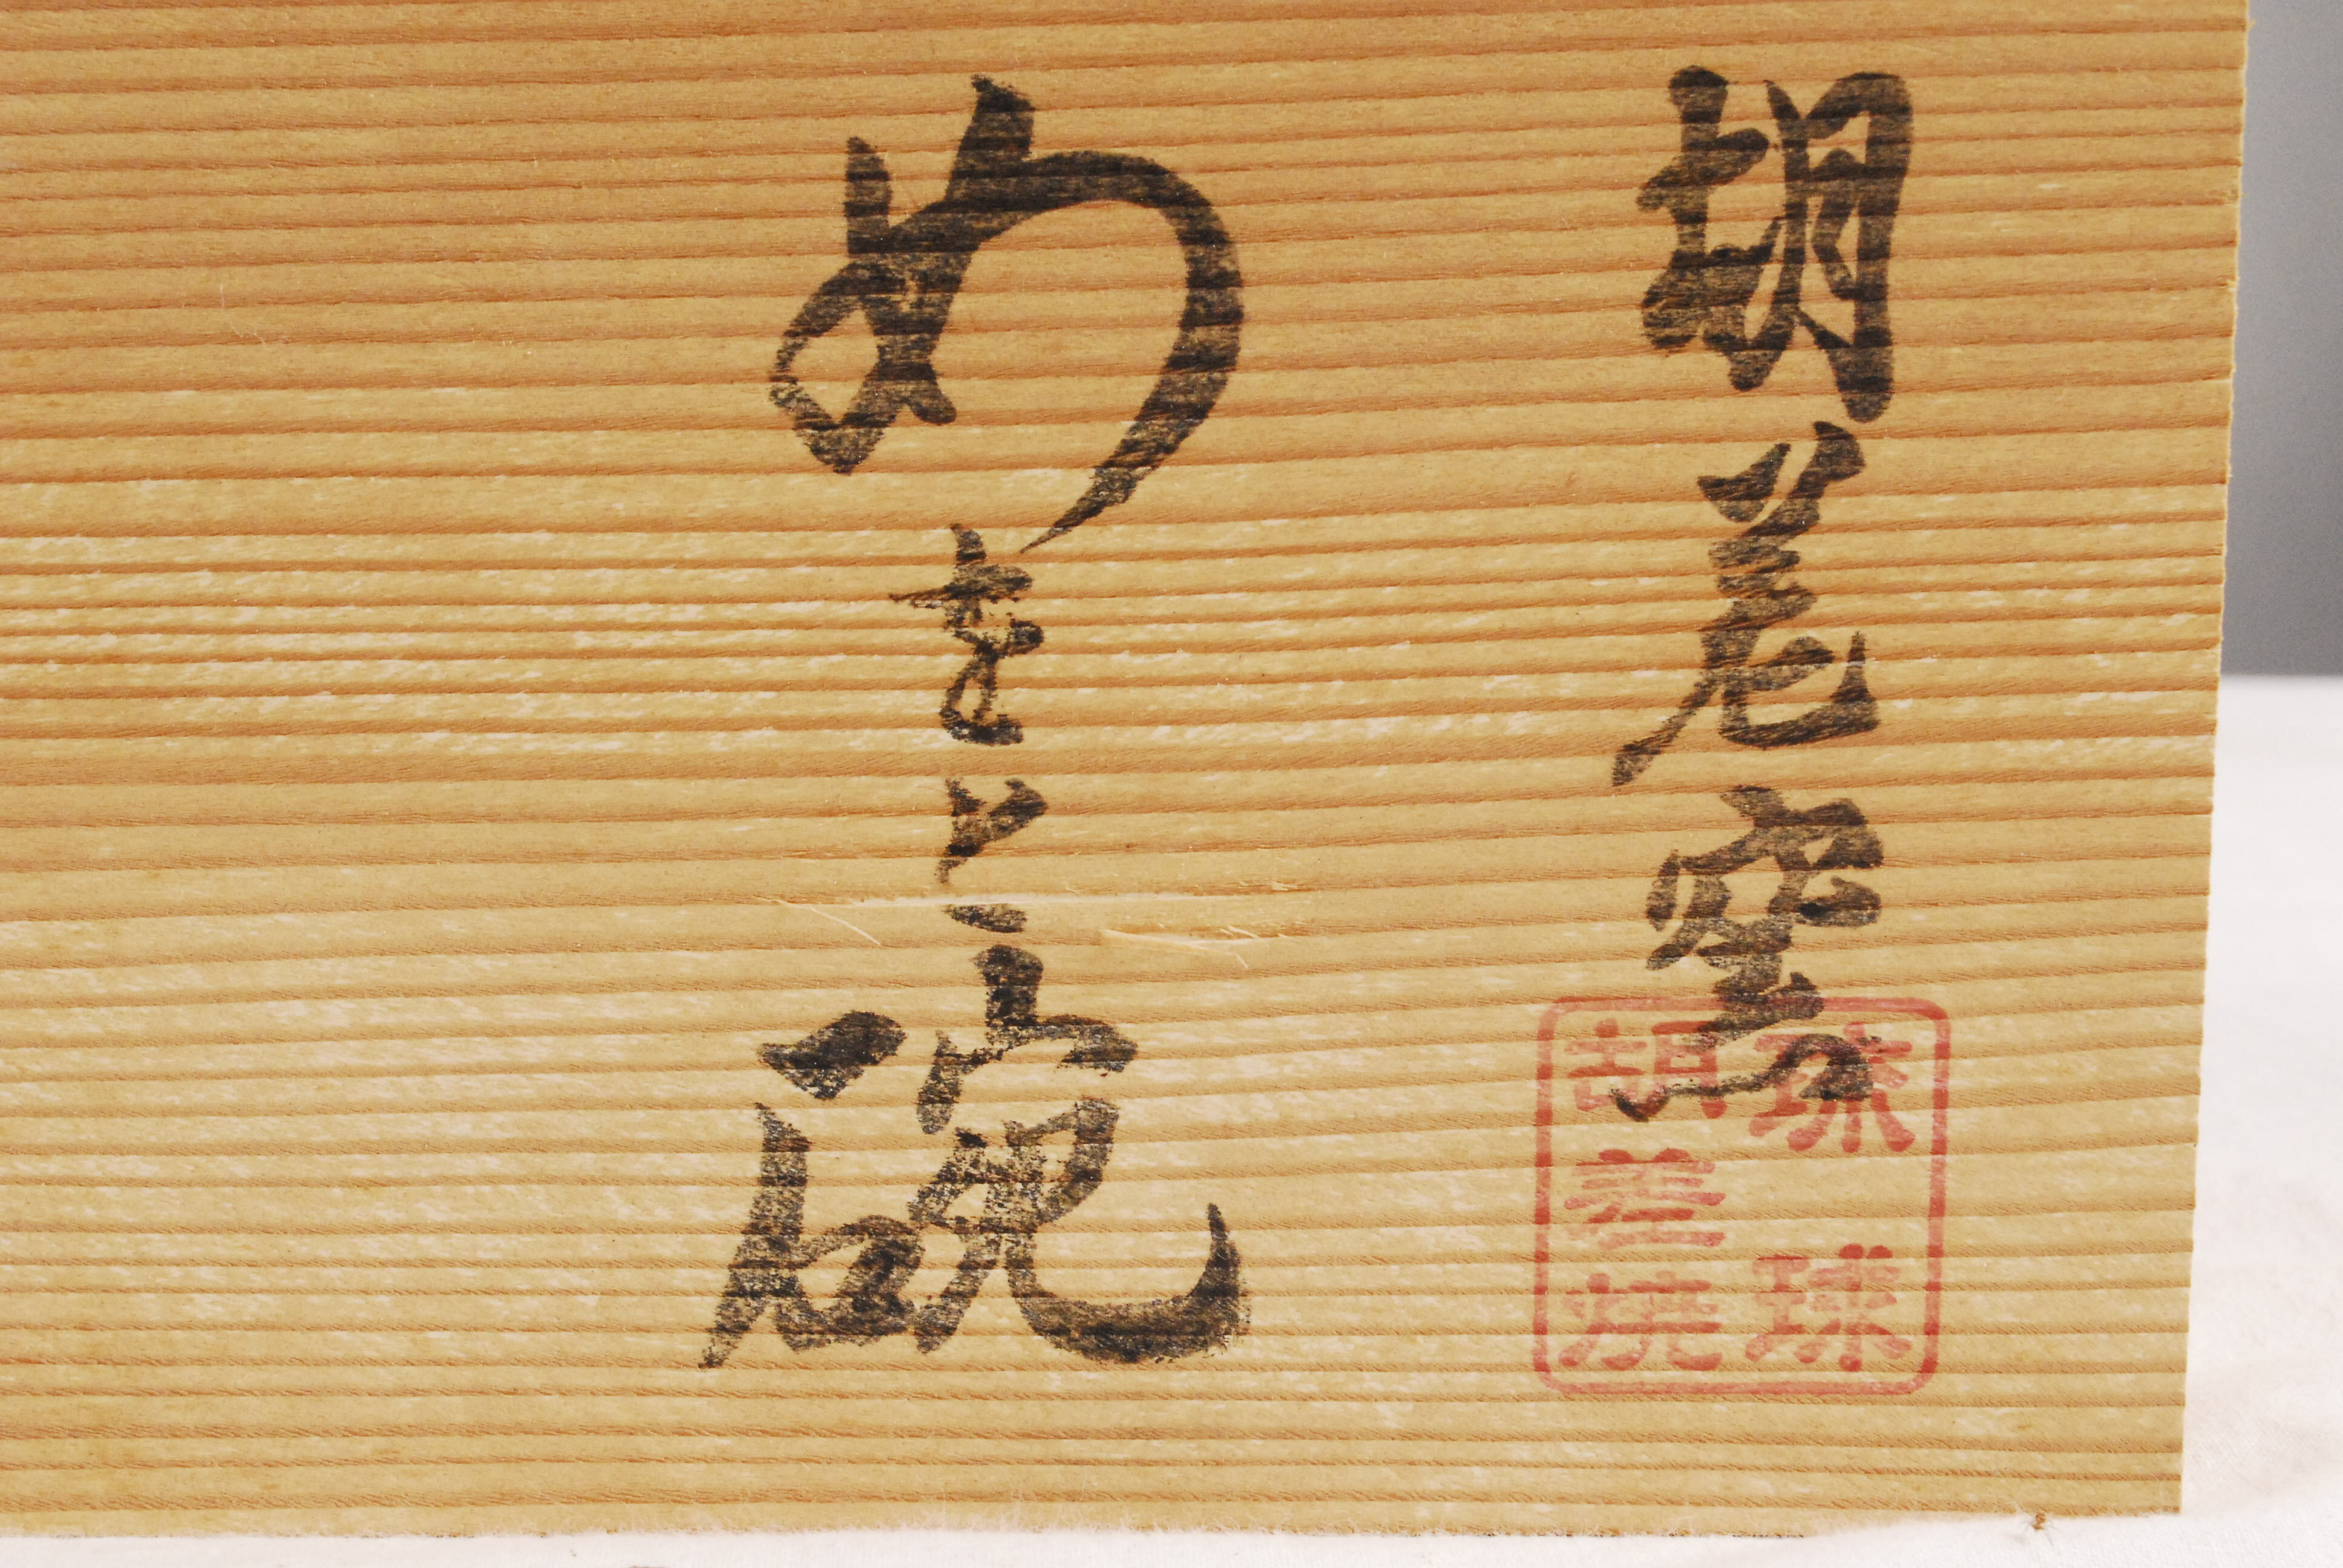 胡差窯
めをと碗
琉球
胡差焼